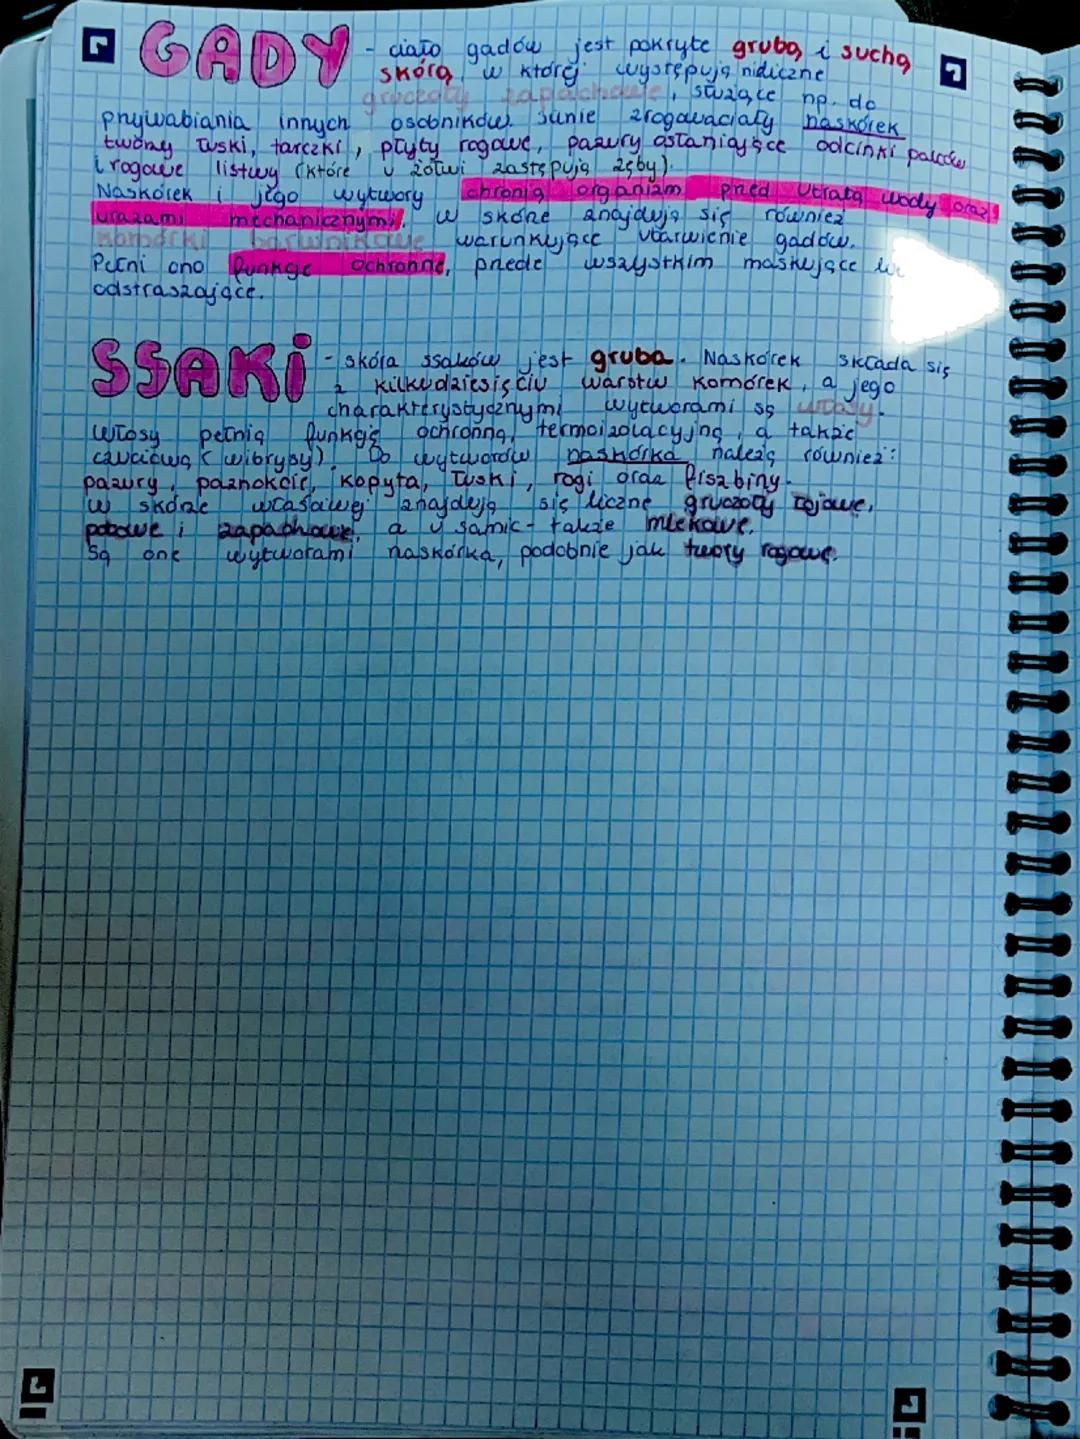 GADY - ciało gadów jest pokryte grubą i suchą
skórą, w której występują nidiczne
gruczoły zapachowe, służące np. do
przywabiania innych osobników. Silnie zrogowaciały naskórek
tworzy łuski, tarczki, płyty rogowe, pazury osłaniające odcinki palców
i rogowe listwy (które u żółwi zastępują zęby).
Naskórek i jego wytwory chronią organizm przed utratą wody oraz
urazami mechanicznymi. W skórze znajdują się również
komórki barwnikowe warunkujące ubarwienie gadów.
Pełni ono funkcje ochronne, przede wszystkim maskujące
odstraszające.
SSAKI - skóra ssaków jest gruba. Naskórek składa się
z kilkudziesięciu warstw komórek, a jego
charakterystycznymi wytworami są włosy.
Włosy pełnią funkcję ochronną, termoizolacyjną, a także
czuciową (wibrysy). Do wytworów naskórka należą również:
pazury, paznokcie, kopyta, łuski, rogi oraz fiszbiny.
W skórze właściwej znajdują się liczne gruczoły łojowe,
potowe i zapachowe, a u samic - także mlekowe.
Są one wytworami naskórka, podobnie jak twory rogowe.